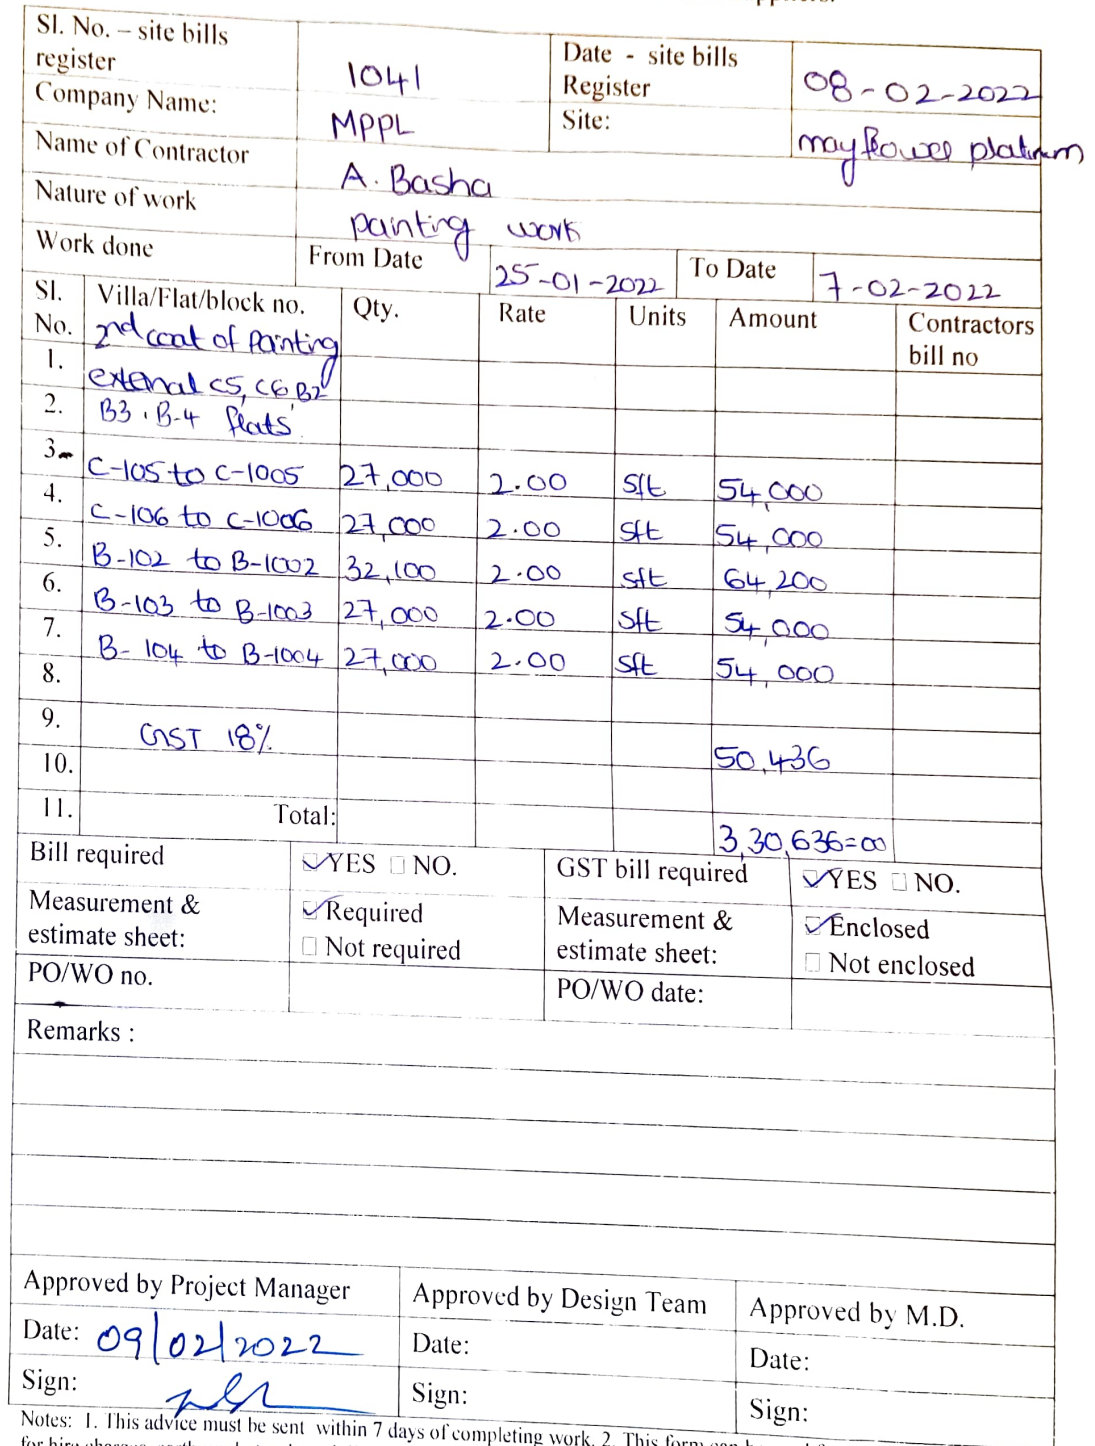 Sl. No. – site bills register 1041 Date - site bills Register 08-02-2022
Company Name: MPPL Site: mayflower platinum
Name of Contractor A. Basha
Nature of work painting work
Work done From Date 25-01-2022 To Date 7-02-2022
Sl. No. Villa/Flat/block no. Qty. Rate Units Amount Contractors bill no
1. 2nd coat of painting
2. external C5, C6, B2
3. B3, B-4 flats
4. C-105 to C-1005 27,000 2.00 sft 54,000
5. C-106 to C-1006 27,000 2.00 sft 54,000
6. B-102 to B-1002 32,100 2.00 sft 64,200
7. B-103 to B-1003 27,000 2.00 sft 54,000
8. B-104 to B-1004 27,000 2.00 sft 54,000
9.
10. GST 18% 50,436
11. Total: 3,30,636=00
Bill required YES NO. GST bill required YES NO.
Measurement & estimate sheet: Required Not required Measurement & estimate sheet: Enclosed Not enclosed
PO/WO no. PO/WO date:
Remarks :
Approved by Project Manager Approved by Design Team Approved by M.D.
Date: 09/02/2022 Date: Date:
Sign: Sign: Sign:
Notes: 1. This advice must be sent within 7 days of completing work. 2. This form can be